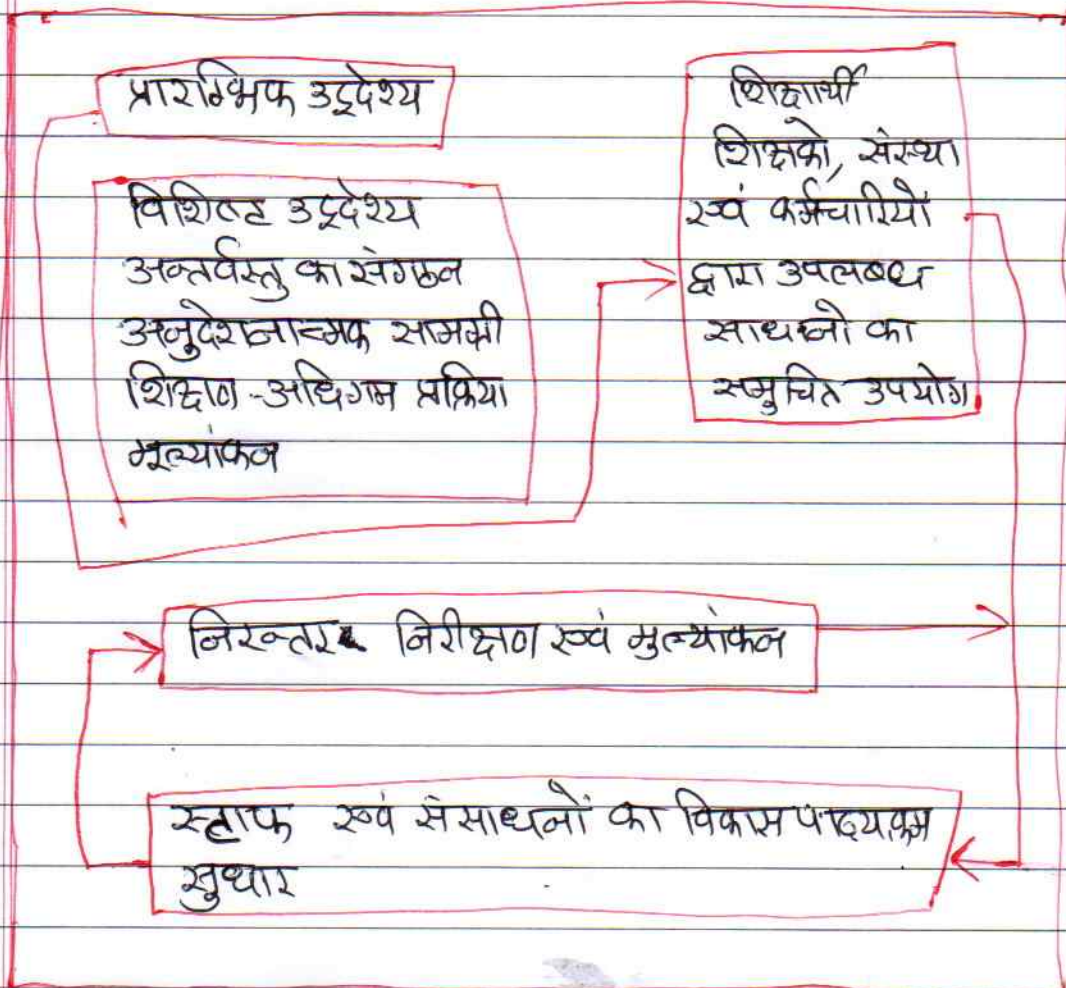 प्रारम्भिक उद्देश्य
विशिष्ट उद्देश्य
अन्तर्वस्तु का संगठन
अनुदेशनात्मक सामग्री
शिक्षण-अधिगम प्रक्रिया
मूल्यांकन
शिक्षार्थी
शिक्षको, संस्था
एवं कर्मचारियों
द्वारा उपलब्ध
साधनो का
समुचित उपयोग
निरन्तर निरीक्षण एवं मुल्यांकन
स्टाफ एवं संसाधनों का विकास पाठ्यक्रम
सुधार